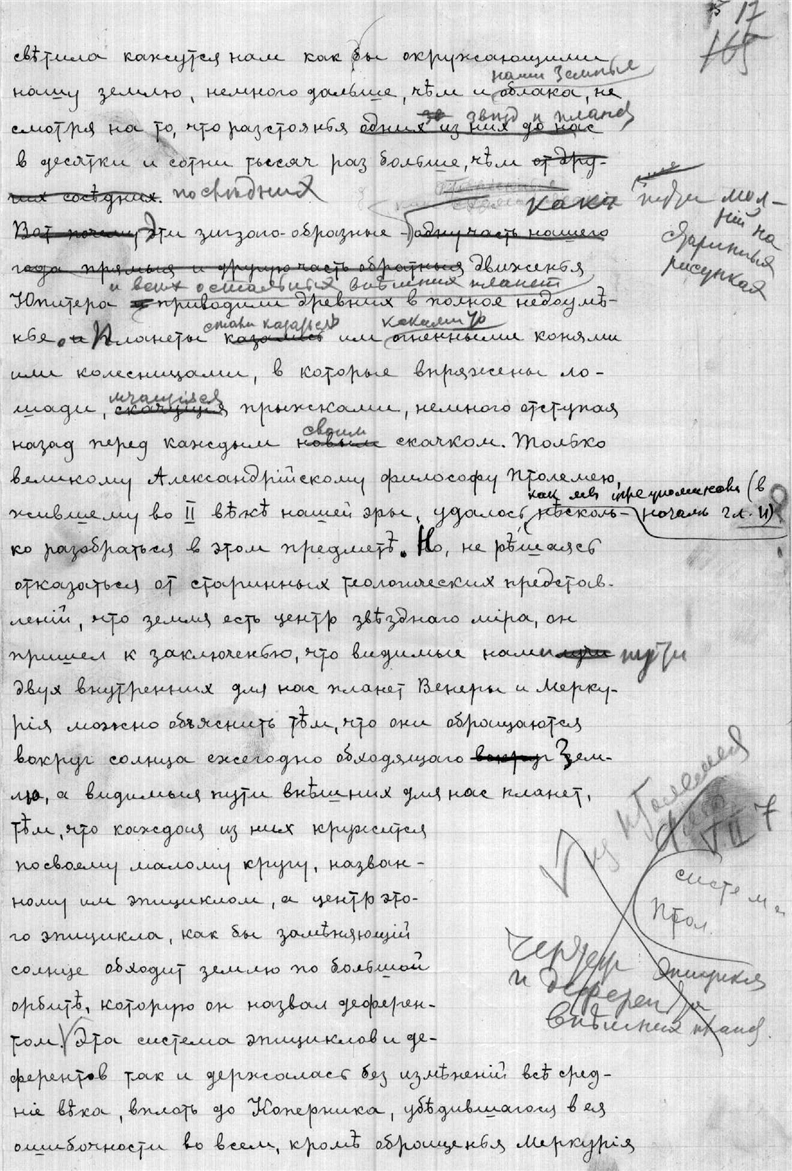 17
165
свѣтила кажутся нам как бы окружающими
наши земныя
нашу землю, немного дальше, чѣм и облака, не
звѣзд и планет
смотря на то, что разстоянья одних из них до нас
в десятки и сотни тысяч раз больше, чѣм от дру-
гих сосѣдних. послѣдних
как пути мол-
ній на
старинных
рисунках
Вот почему Эти зигзаго-образные одну часть нашего
года прямыя и другую часть обратныя движенья
и всѣх остальных внѣшних планет
Юпитера приводили древних в полное недоумѣ-
стали казаться какими то
нье. и Планеты казались им огненными конями
или колесницами, в которые впряжены ло-
мчащіяся
шади, скачущія прыжками, немного отступая
своим
назад перед каждым новым скачком. Только
великому Александрійскому философу Птолемею,
как мы (в
жившему во II вѣкѣ нашей эры, удалось нѣсколь-
началѣ гл. II)
ко разобраться в этом предметѣ. Но, не рѣшаясь
отказаться от старинных теологических представ-
леній, что земля есть центр звѣзднаго міра, он
пришел к заключенью, что видимые нами пути
двух внутренних для нас планет Венеры и Мерку-
рія можно объяснить тѣм, что они обращаются
вокруг солнца ежегодно обходящаго вокруг Зем-
лю, а видимыя пути внѣшних для нас планет,
тѣм, что каждая из них кружится
посвоему малому кругу, назван-
ному им эпициклом, а центр это-
го эпицикла, как бы замѣняющій
солнце обходит землю по большой
орбитѣ, которую он назвал деферен-
том. Эта система эпициклов и де-
ферентов так и держалась без измѣненій всѣ сред-
ніе вѣка, вплоть до Коперника, убѣдившагося в ея
ошибочности во всем, кромѣ обращенья Меркурія
из Птолемея
VII 7
систем
Птол.
Чертеж
эпицикл
и деферента
внѣшних план.